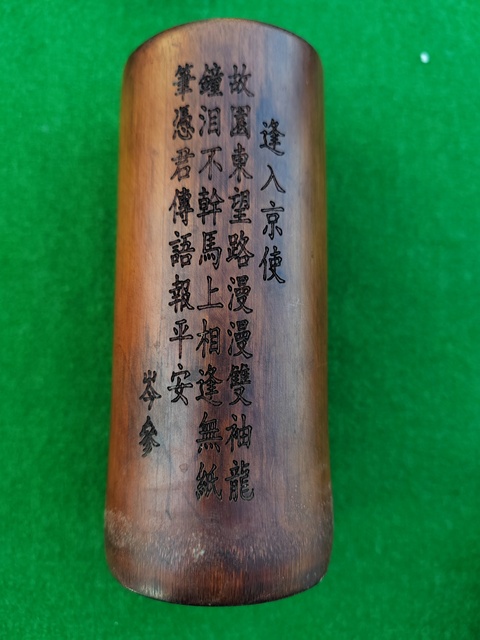 逢入京使
故園東望路漫漫雙袖龍
鐘泪不幹馬上相逢無紙
筆憑君傳語報平安
岑參